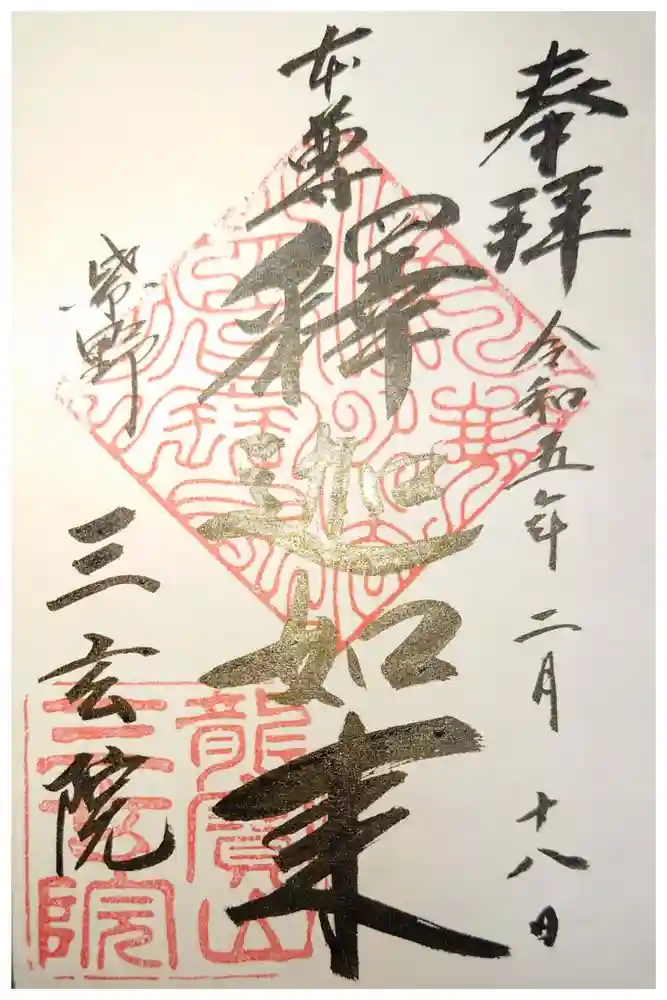 奉拝
令和五年二月十八日
本尊
釋迦如来
紫野
三玄院
龍寳山
三玄院